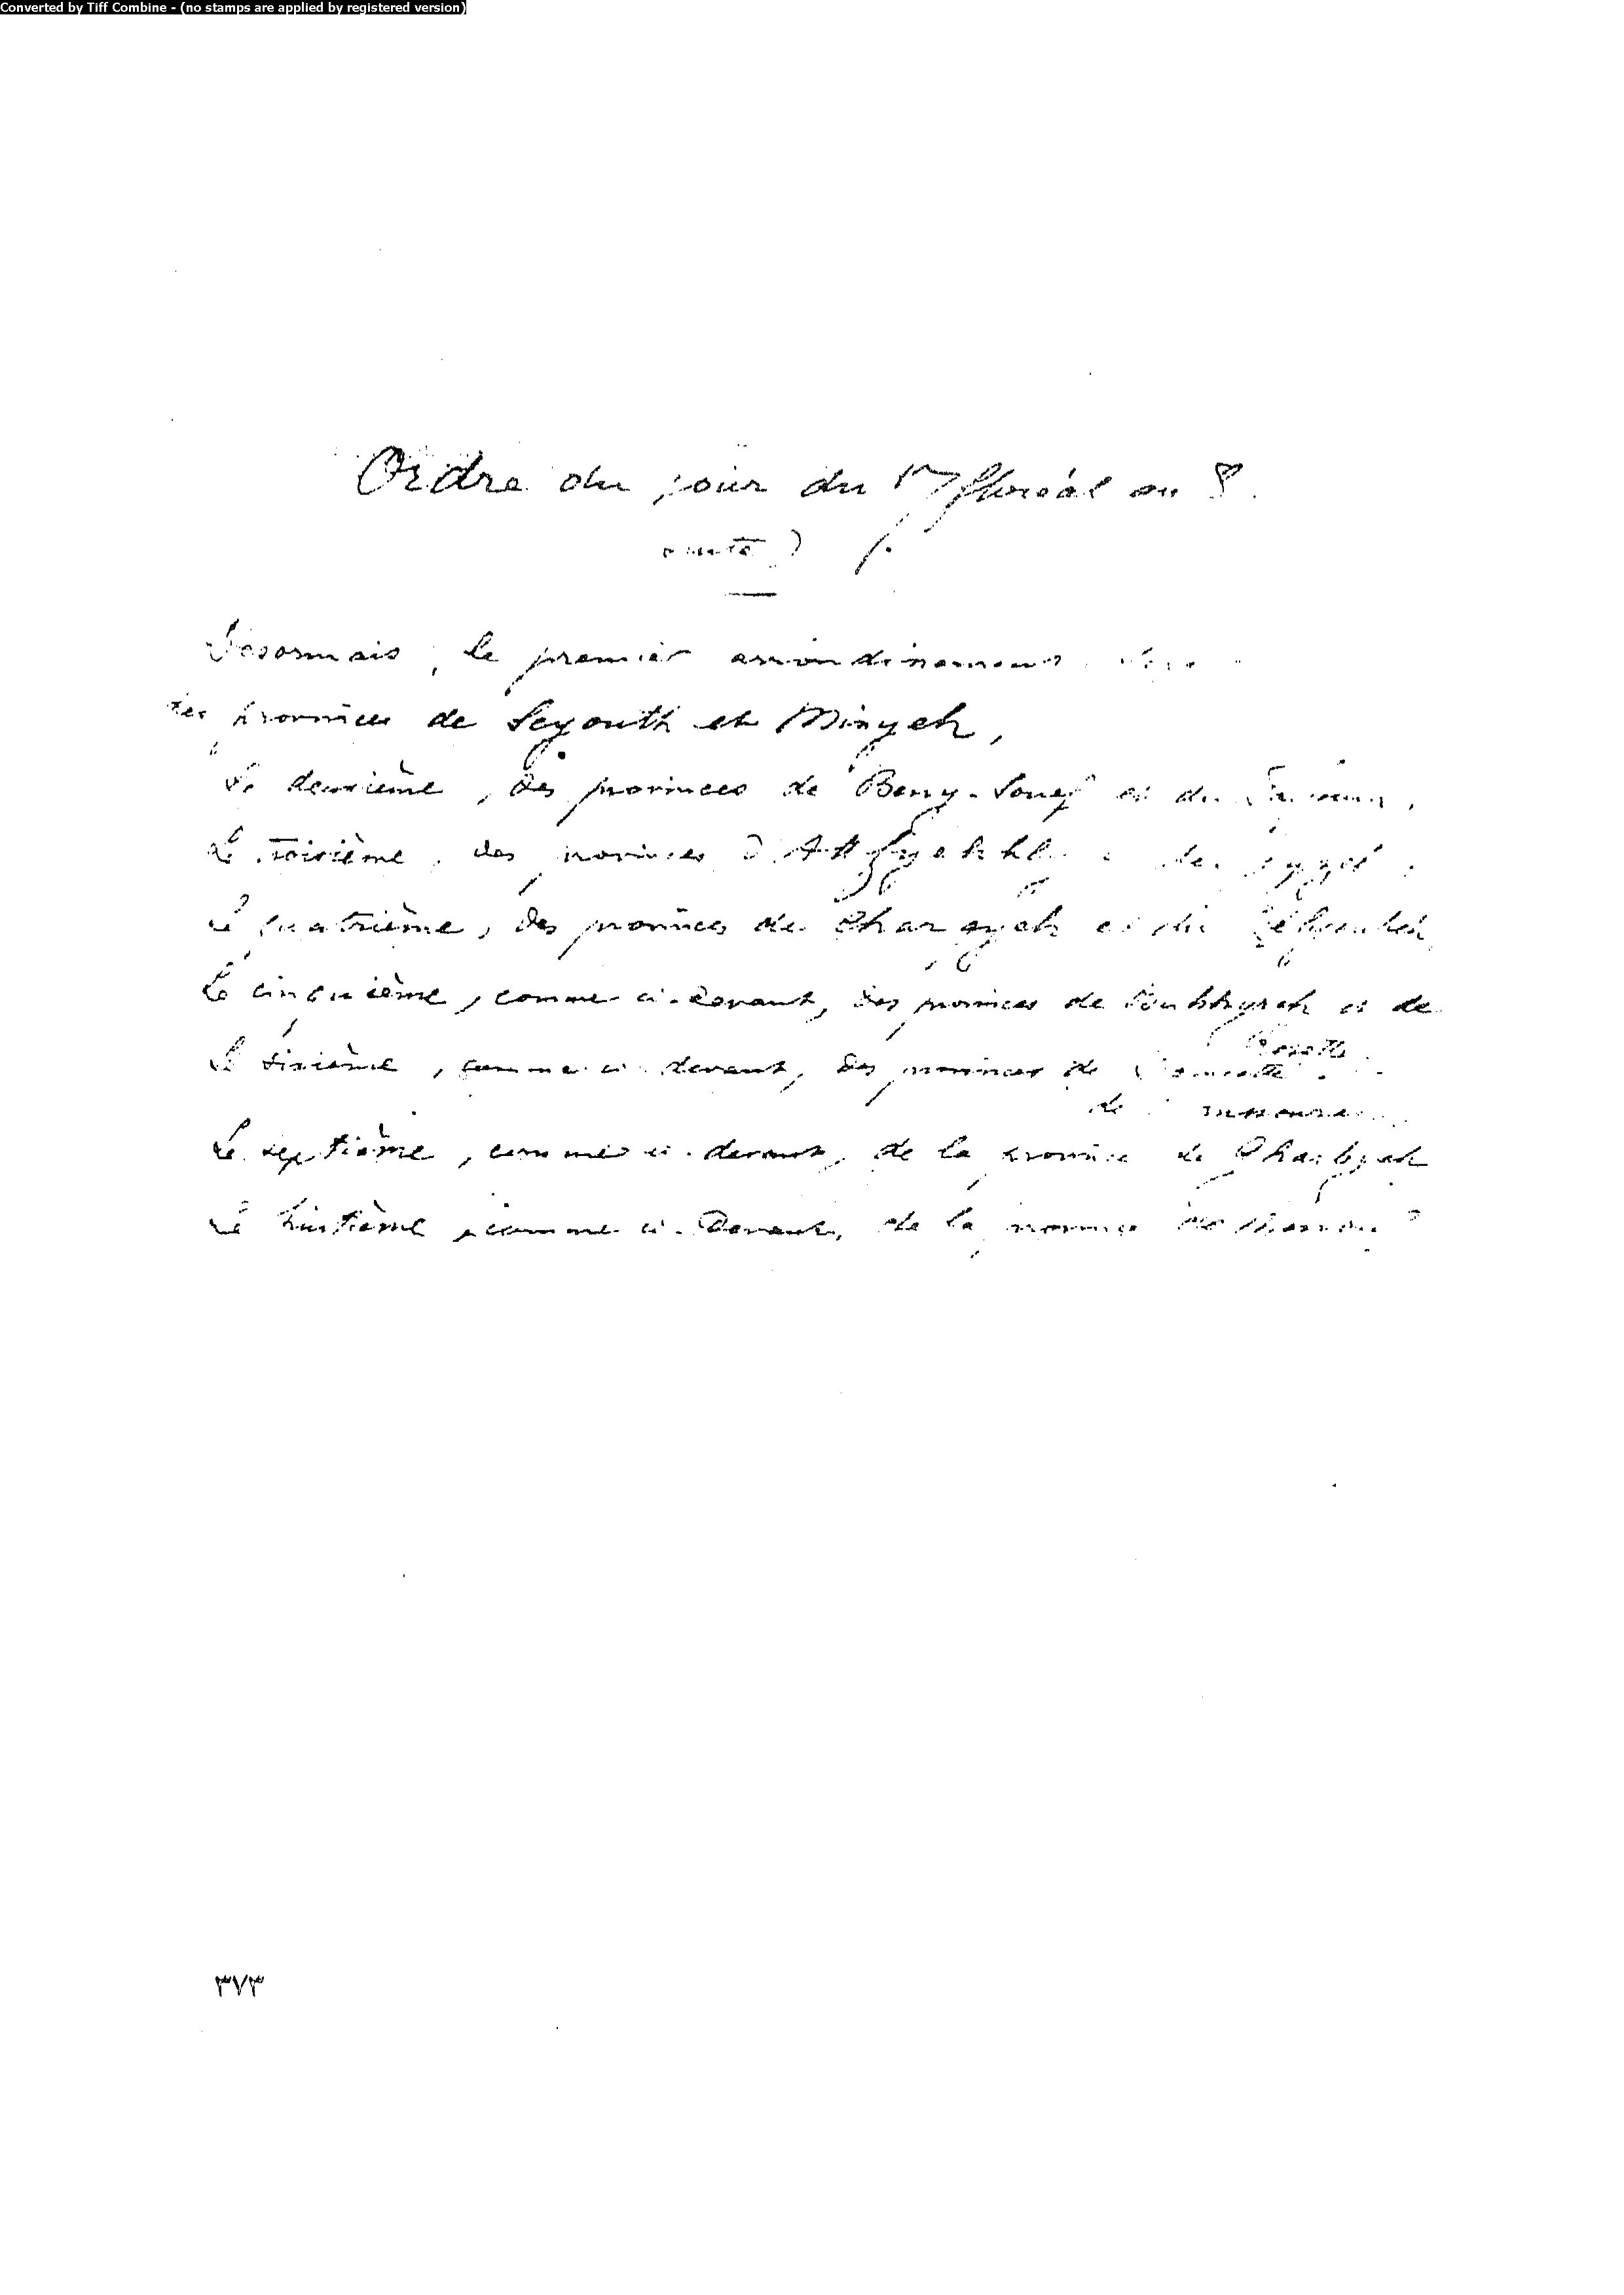 Converted by Tiff Combine - (no stamps are applied by registered version)
Ordre du jour du 17 floréal an 8.
(suite) f.
Désormais, le premier arrondissement
des provinces de Seyouth et Minyeh,
Le deuxième, des provinces de Beny-Souef et du Fayoum,
Le troisième, des provinces d'Attfyehhly et de Gyzeh
Le quatrième, des provinces de Charqyeh et du Qélyoubeh
Le cinquième, comme ci-devant, des provinces de et de
Rosette
Le sixième, comme ci-devant, des provinces de Damiette
de Mansoura
Le septième, comme ci-devant, de la province de Gharbyeh
Le huitième, comme ci-devant, de la province de
٣٧٣